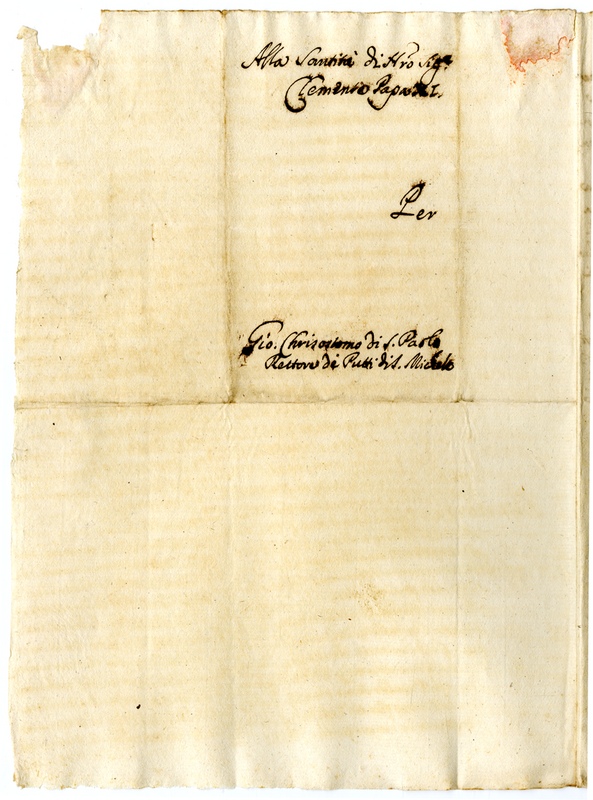 Alla Santità di Nro Sigre
Clemente Papa XI.
Per
Gio. Chrisostomo di S. Paolo
Rettore de Putti di S. Michele